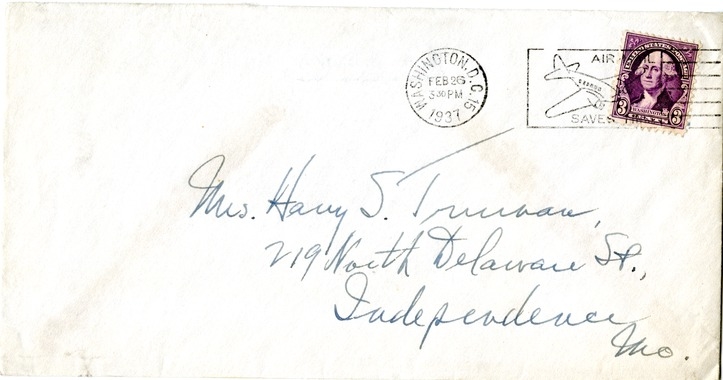 WASHINGTON, D.C. 15
FEB 26
3 30 PM
1937
AIR
SAVES
3 WASHINGTON 3
Mrs. Harry S. Truman,
219 North Delaware St.,
Independence
Mo.